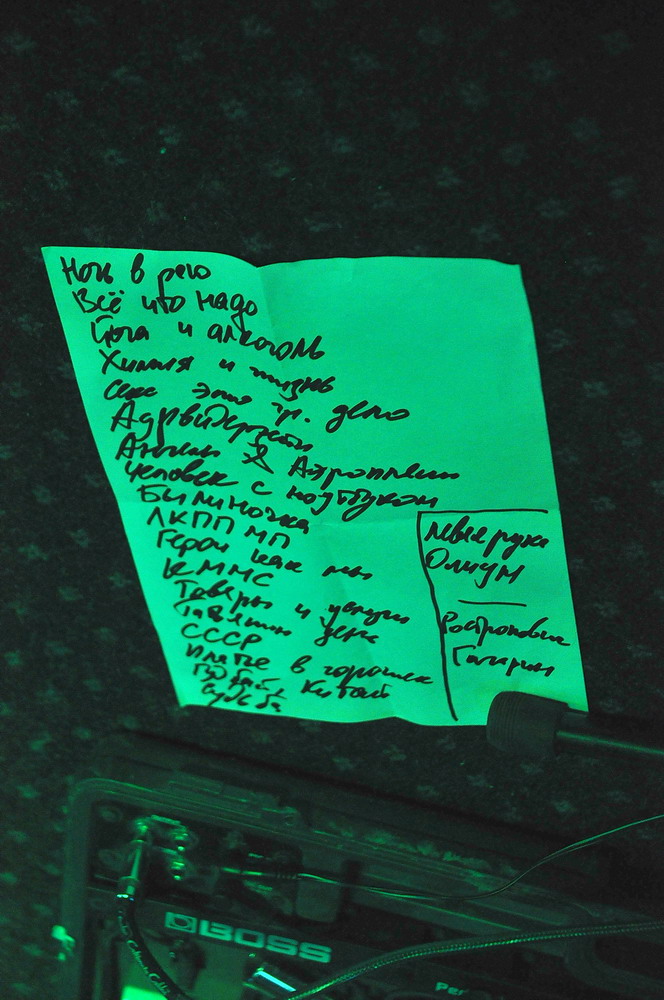 Ночь в рею
Всё что надо
Йога и алкоголь
Химия и жизнь
Секс это гр. дело
Адрвидерчи
Ангелы & Аэропланы
Человек с ноутбуком
Билиночка
ЛКПП МП
Герои как мы
КММС
Товары и услуги
Татьянин день
СССР
Платье в горошек
Китай
Судьба
левые руки
Опиум
Ростропович
Гагарин
BOSS